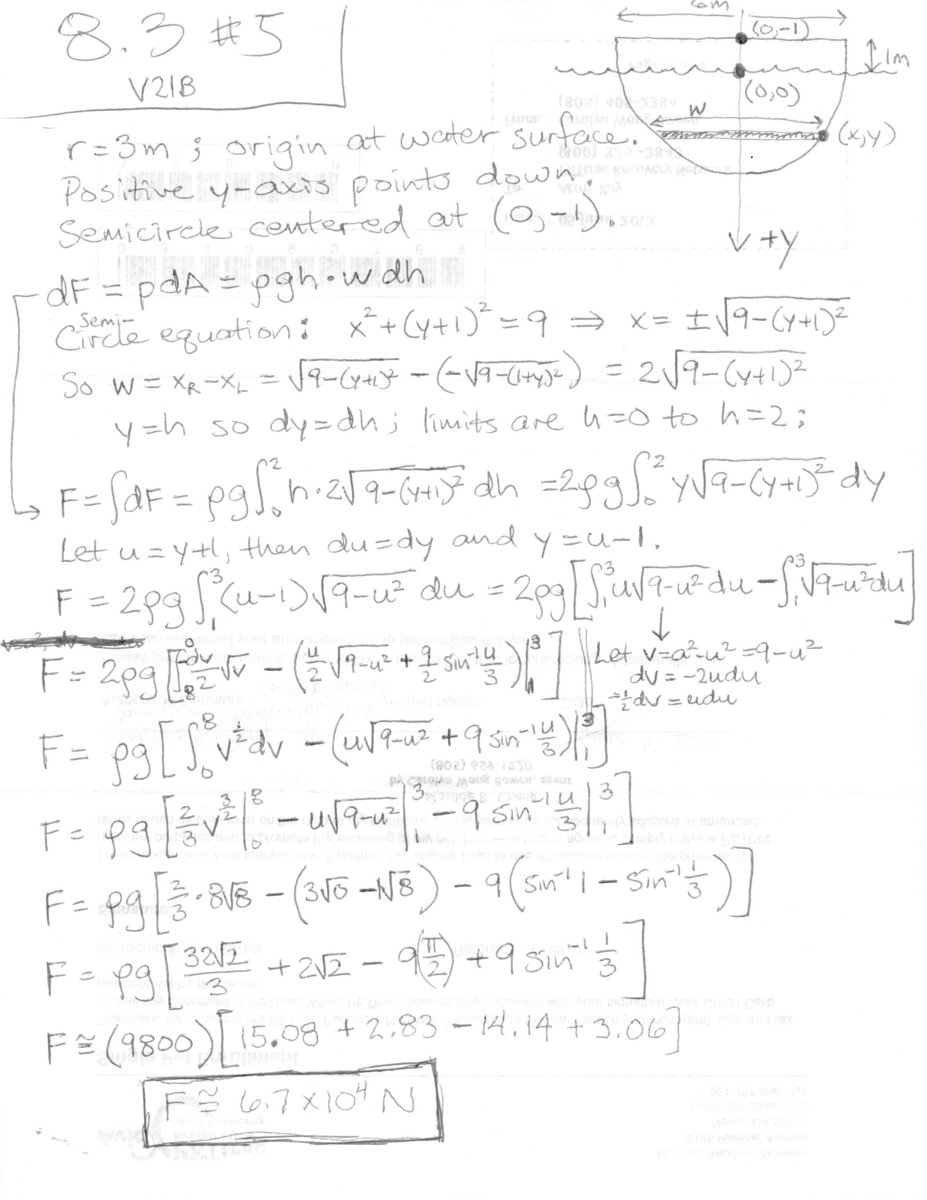 8.3 #5
V21B
6m
(0,-1)
1m
(0,0)
w
(x,y)
+y
r=3m ; origin at water surface.
Positive y-axis points down.
Semicircle centered at (0,-1).
dF = pdA = ρgh·w dh
Semi-
Circle equation: x²+(y+1)²=9 ⇒ x= ±√(9-(y+1)²)
So w = x_R-x_L = √(9-(y+1)²) - (-√(9-(1+y)²)) = 2√(9-(y+1)²)
y=h so dy=dh; limits are h=0 to h=2;
F=∫dF = ρg∫₀² h·2√(9-(y+1)²) dh = 2ρg∫₀² y√(9-(y+1)²) dy
Let u=y+1, then du=dy and y=u-1.
F = 2ρg∫₁³(u-1)√(9-u²) du = 2ρg[∫₁³u√(9-u²)du - ∫₁³√(9-u²)du]
F = 2ρg[∫₈⁰ -dv/2 √v (u/2 √(9-u²) + 9/2 sin⁻¹ u/3)|₁³]
Let v=a²-u²=9-u²
dv = -2udu
-½dv = udu
F = ρg[∫₀⁸ v^½dv - (u√(9-u²) + 9 sin⁻¹ u/3)|₁³]
F = ρg[2/3 v^(3/2)|₀⁸ - u√(9-u²)|₁³ - 9 sin⁻¹ u/3|₁³]
F = ρg[2/3·8√8 - (3√0 - 1√8) - 9(sin⁻¹ 1 - sin⁻¹ 1/3)]
F = ρg[32√2/3 + 2√2 - 9(π/2) + 9 sin⁻¹ 1/3]
F ≅ (9800)[15.08 + 2.83 - 14.14 + 3.06]
F ≅ 6.7 x10⁴ N